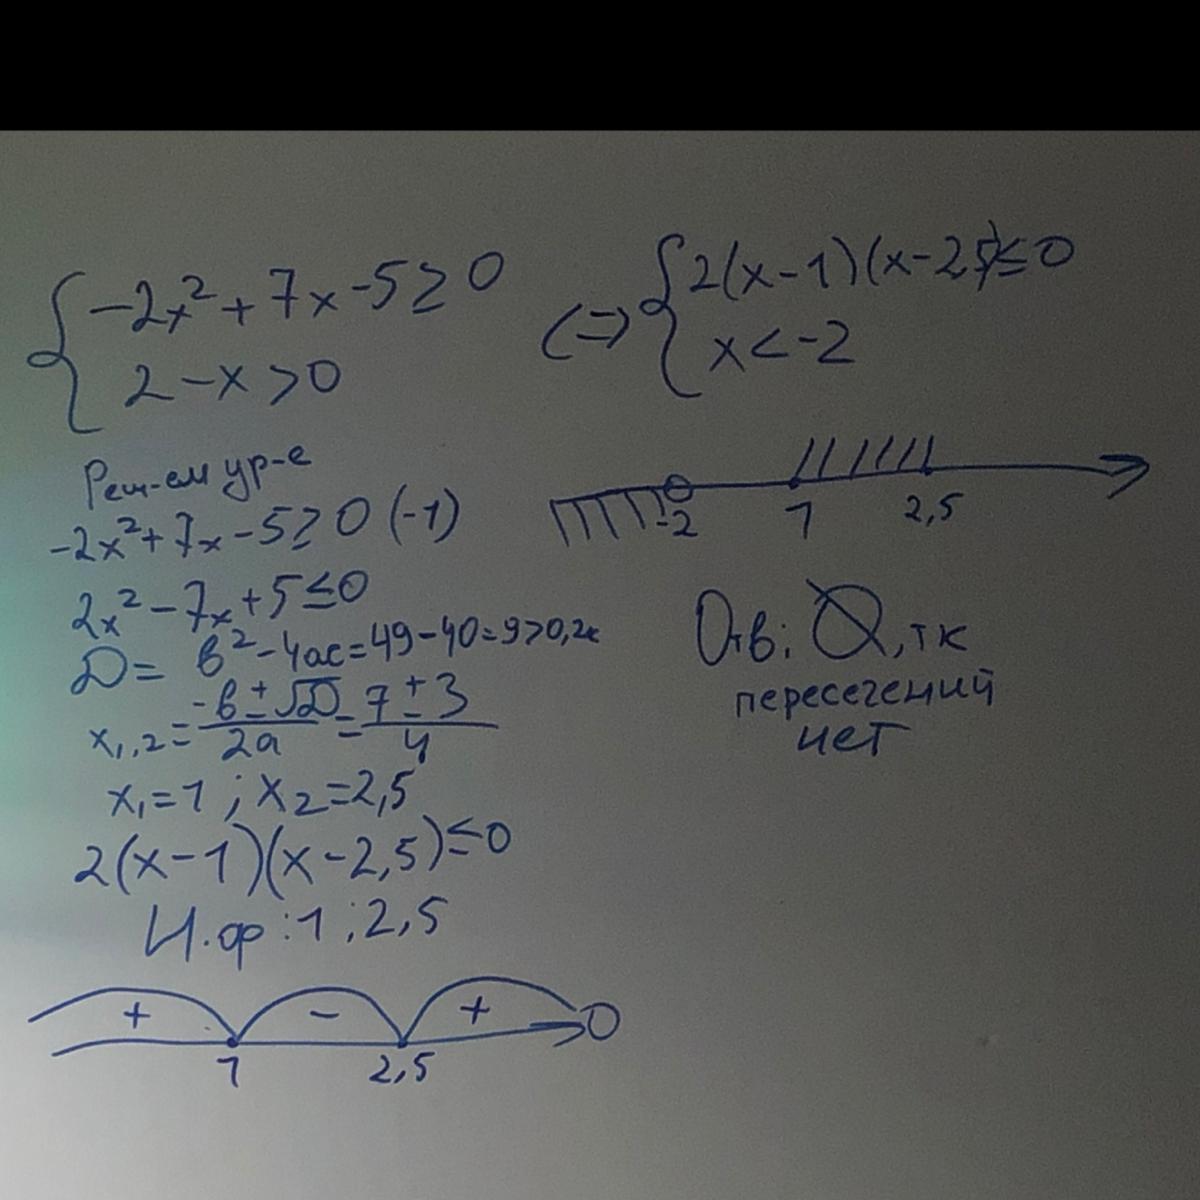 -2x²+7x-5≥0
2-x>0
<=> 2(x-1)(x-2,5)≤0
x<-2
Реш-ем ур-е
-2x²+7x-5≥0 (-1)
2x²-7x+5≤0
D= b²-4ac=49-40=9>0,2к
x₁,₂= (-b±√D)/2a = (7±3)/4
x₁=1; x₂=2,5
2(x-1)(x-2,5)≤0
Н.ф: 1; 2,5
+ - +
1 2,5
-2 1 2,5
Отв: Ø, тк
пересечений
нет